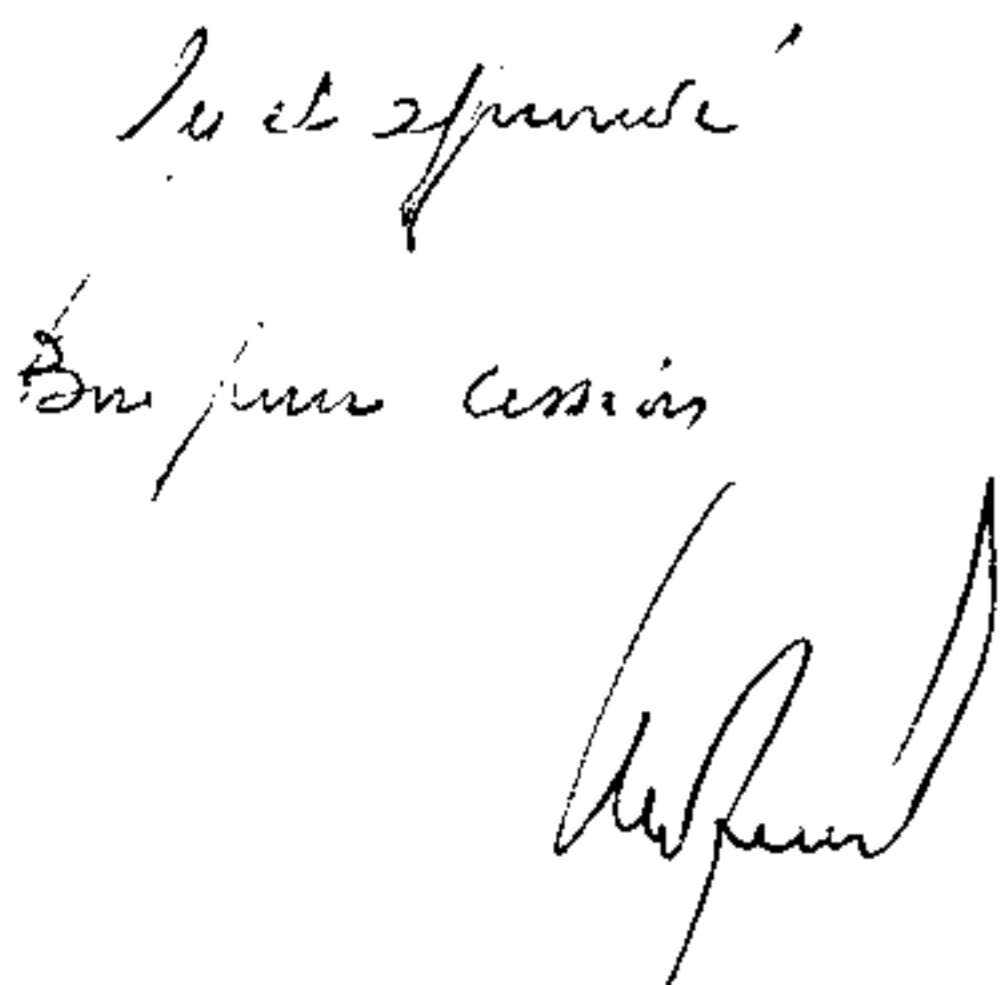 lu et approuvé
Bon pour cession